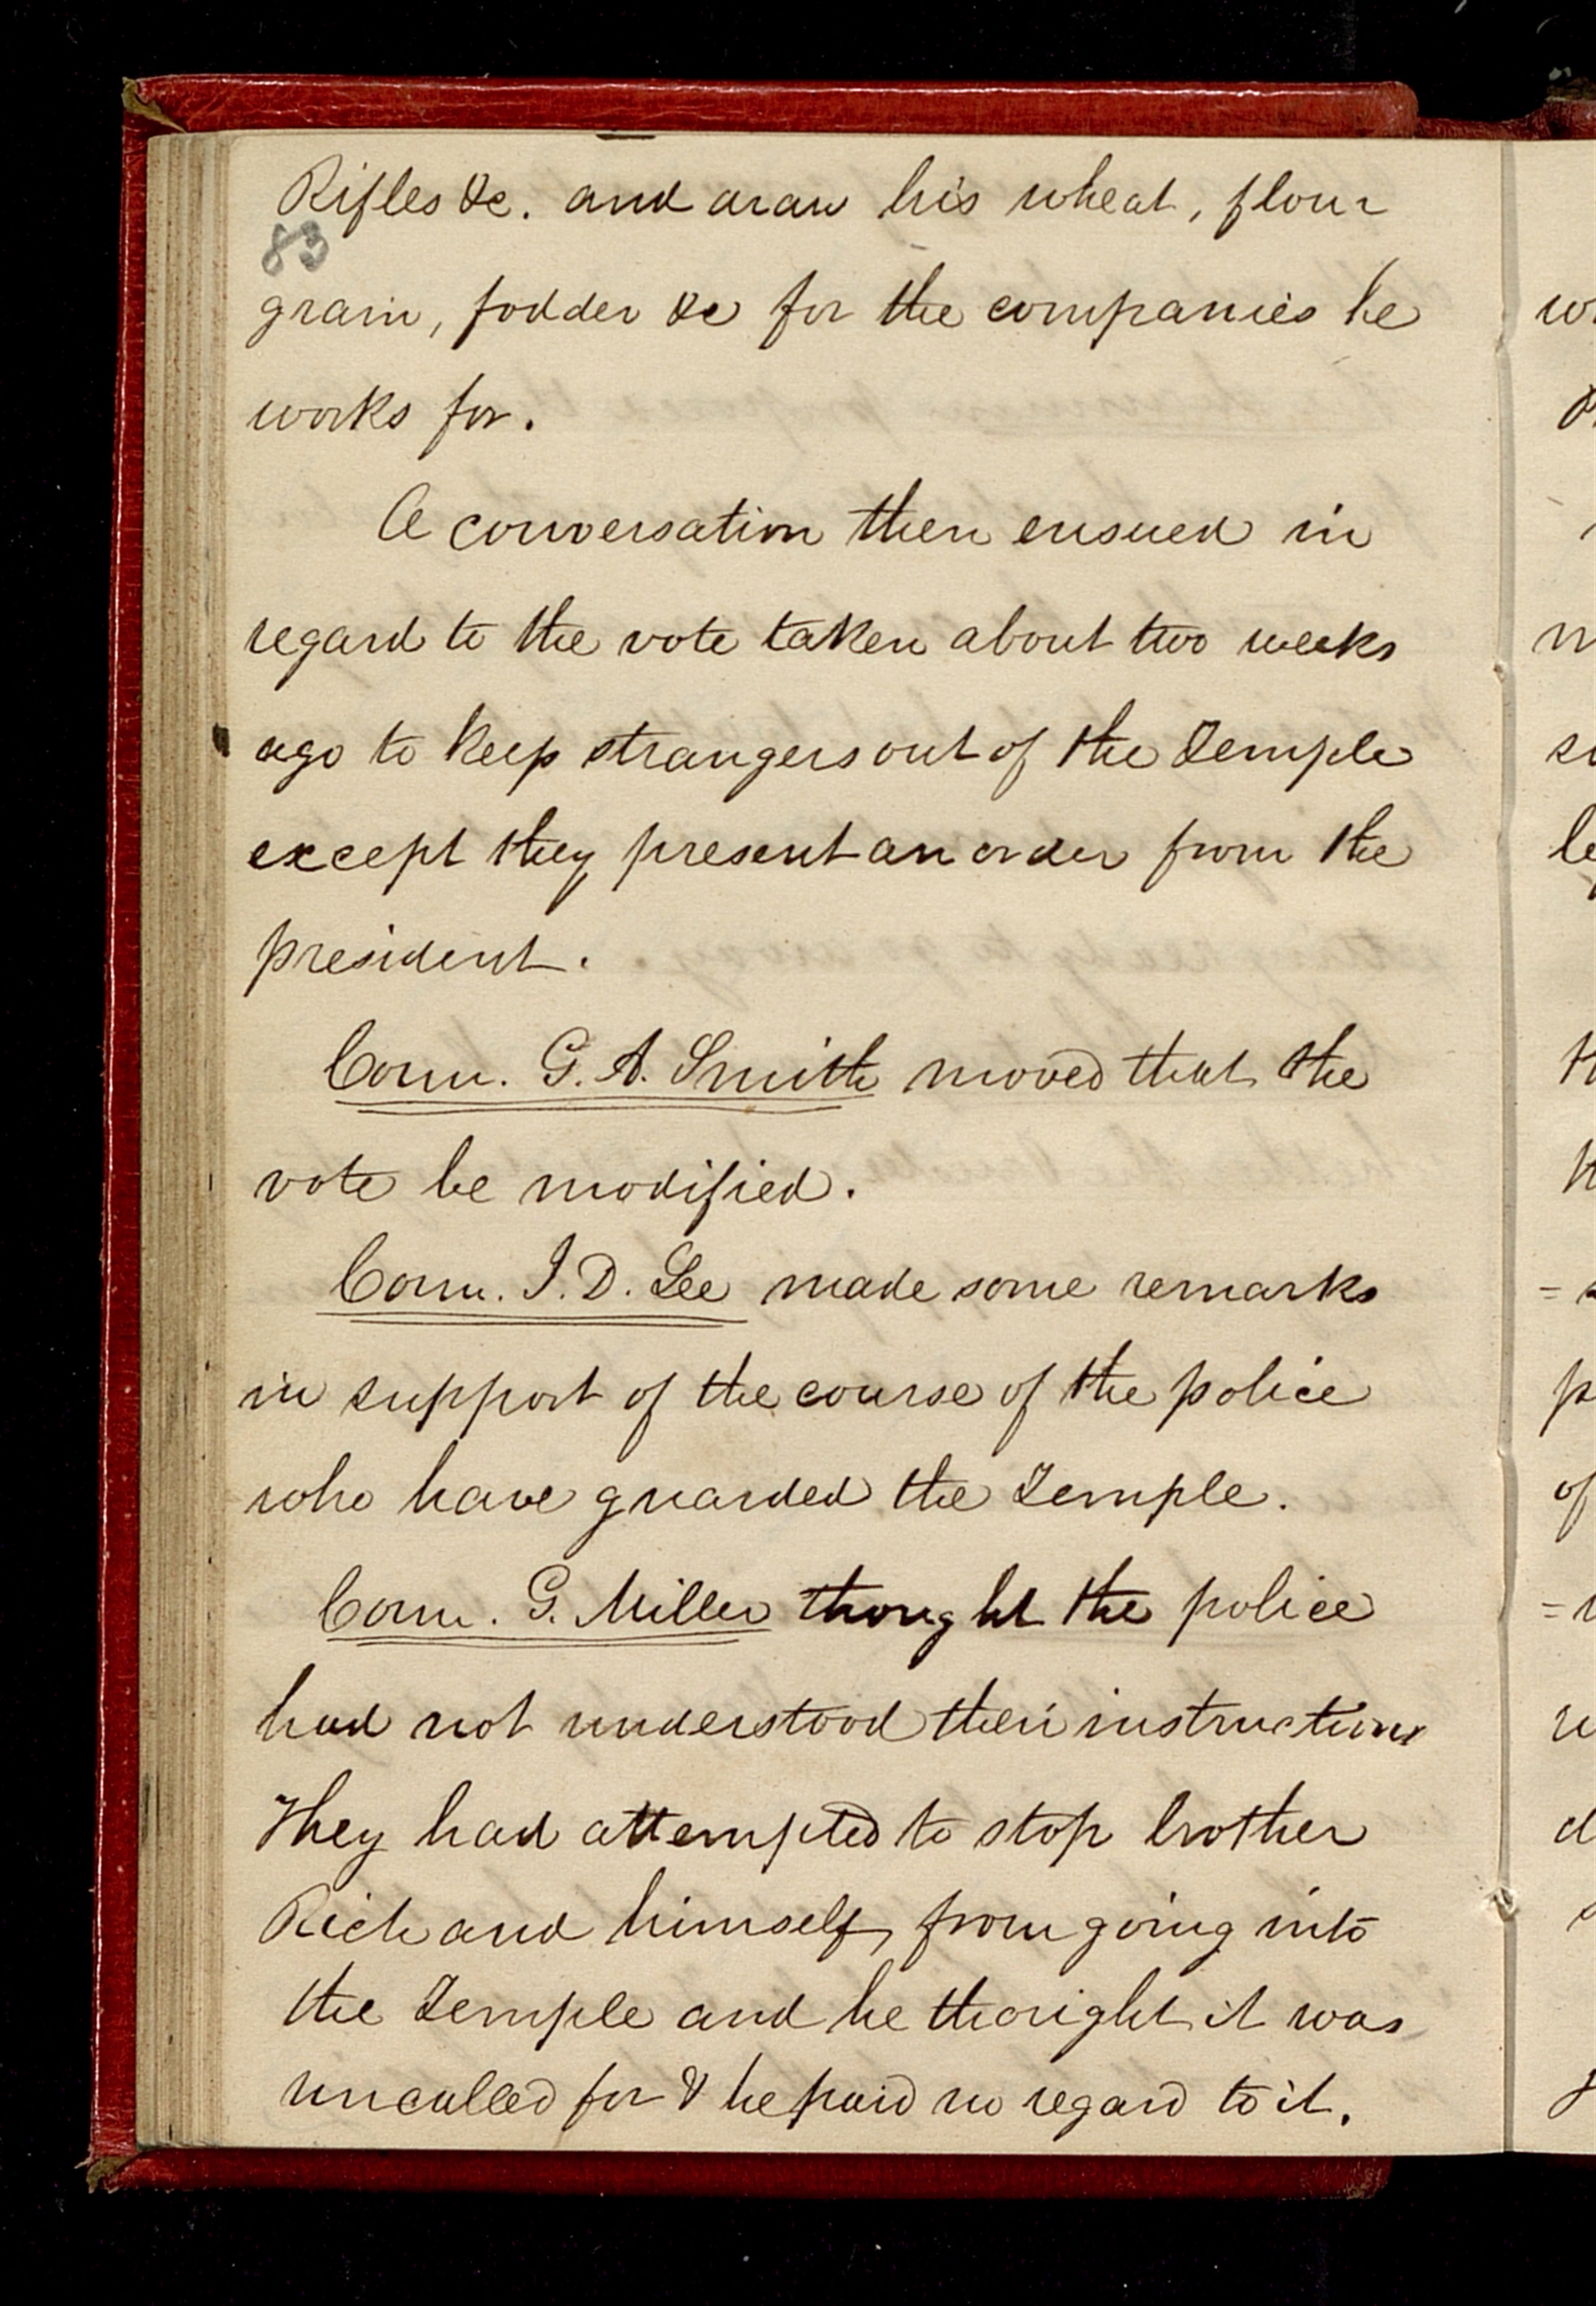 Rifles &c. and draw his wheat, flour
83
grain, fodder &c for the companies he
works for.
A conversation then ensued in
regard to the vote taken about two weeks
ago to keep strangers out of the Temple
except they present an order from the
president.
Coun. G. A. Smith moved that the
vote be modified.
Coun. J. D. Lee made some remarks
in support of the course of the police
who have guarded the Temple.
Coun. G. Miller thought the police
had not understood their instructions
They had attempted to stop brother
Rich and himself, from going into
the Temple and he thought it was
uncalled for & he paid no regard to it.